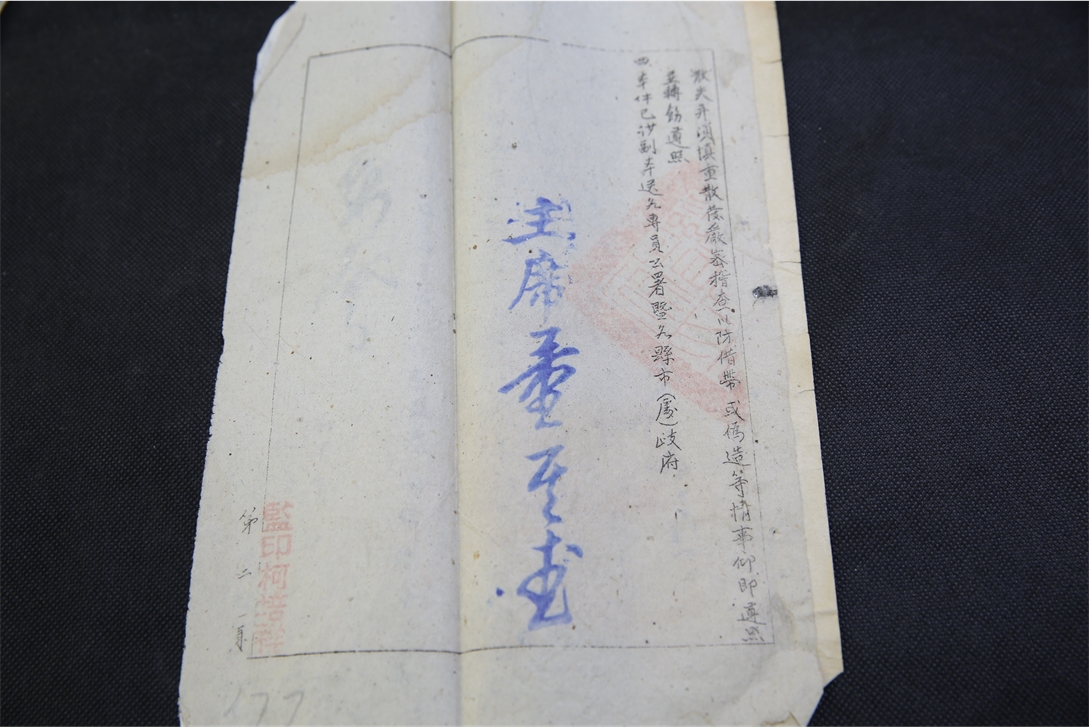 散失并須慎重散發嚴密稽查以防借幣或偽造等情事仰即遵照
並轉飭遵照
四 本件已抄副本送各專員公署暨各縣市()政府
主席董其武
監印柯
第二頁
177